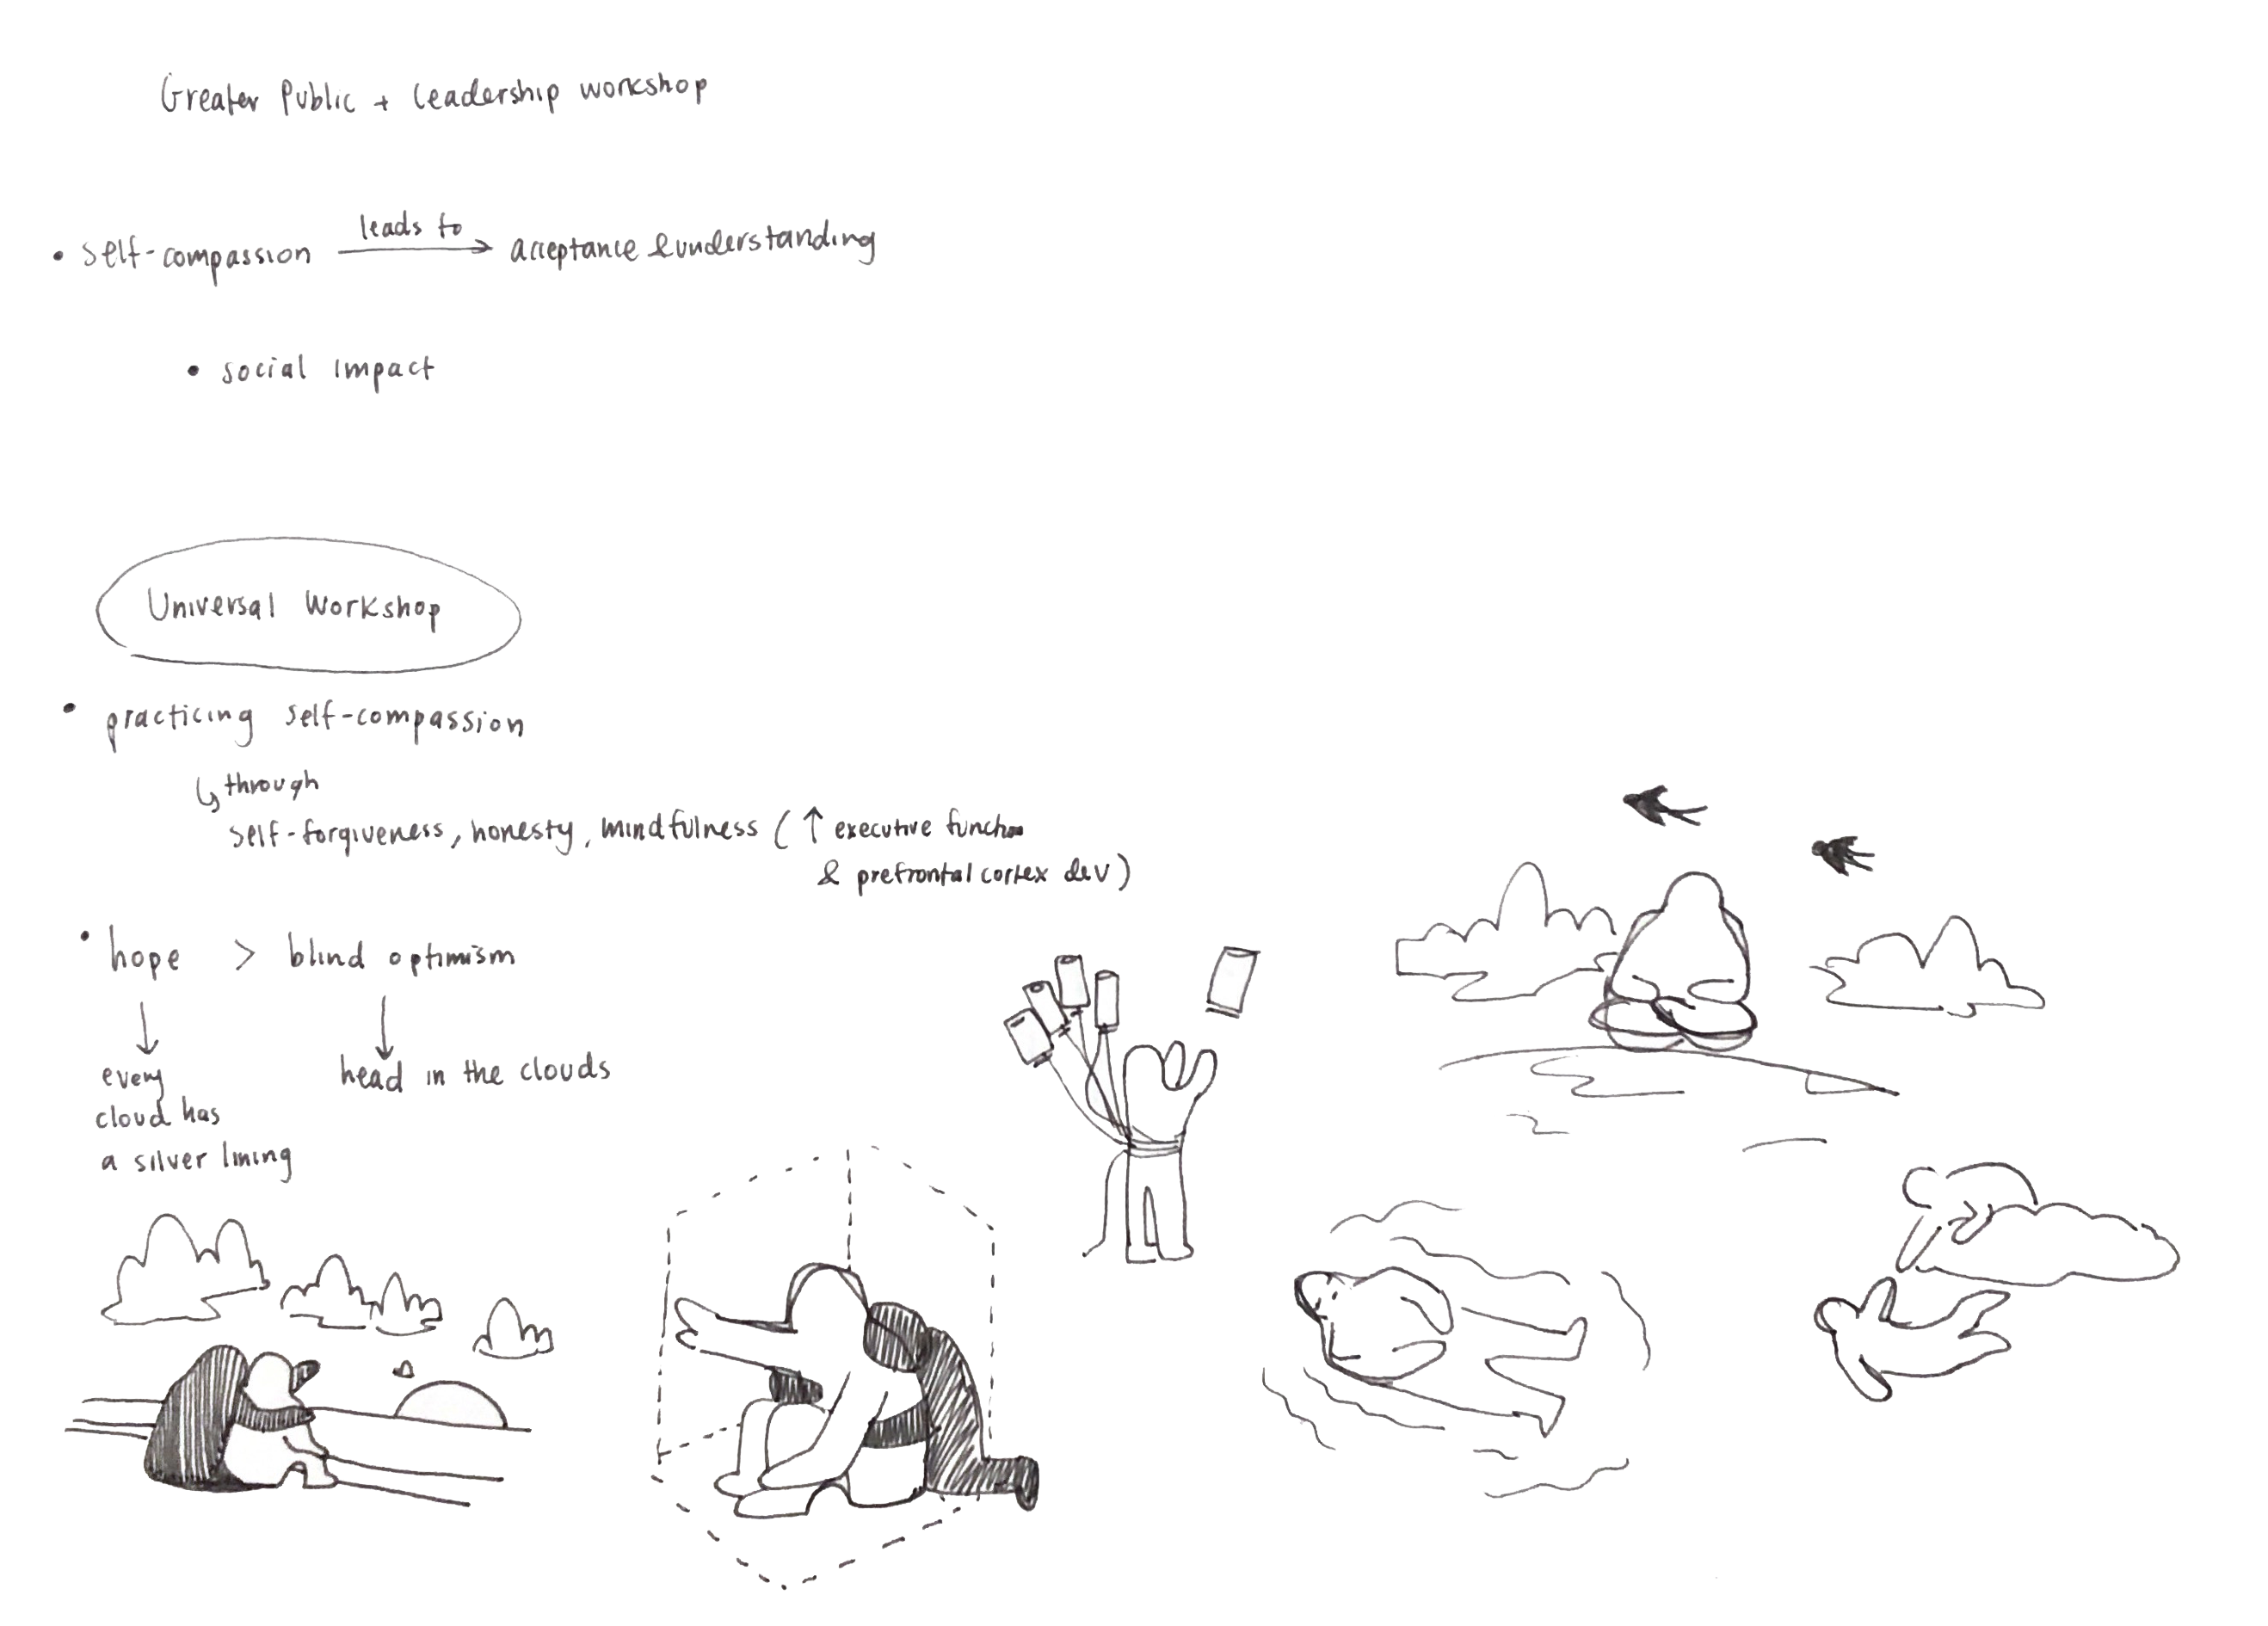 Greater Public + Leadership workshop
• self-compassion leads to → acceptance & understanding
• social impact
Universal Workshop
• practicing self-compassion
↳ through
self-forgiveness, honesty, mindfulness (↑ executive function
& prefrontal cortex dev)
• hope > blind optimism
↓ ↓
every
cloud has
a silver lining
head in the clouds